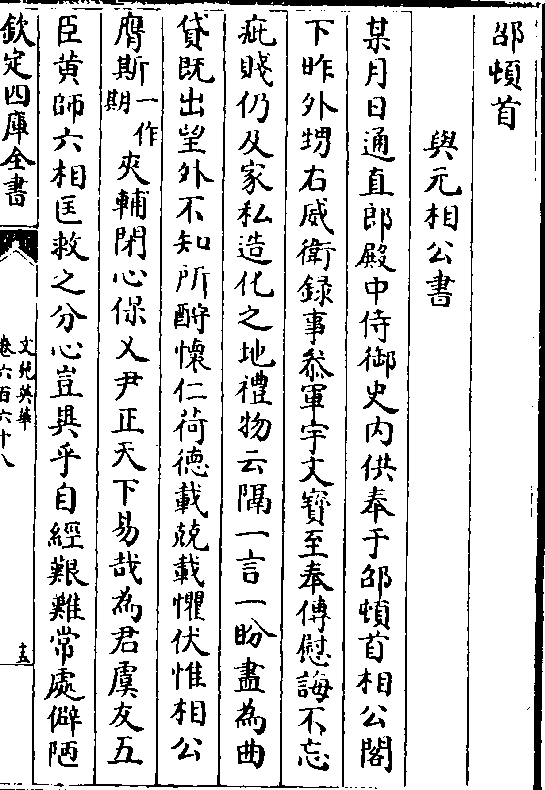 邵頓首
與元相公書
某月日通直郎殿中侍御史內供奉于邵頓首相公閣
下昨外甥右威衛録事叅軍宇文寳至奉傳慰誨不忘
疵賤仍及家私造化之地禮物云隔一言一盼盡為曲
貸既出望外不知所酧懐仁荷徳載兢載懼伏惟相公
膺斯一作期夾輔閉心保乂尹正天下易哉為君虞友五
臣黄師六相匡救之分心豈異乎自經艱難常處僻陋
欽定四庫全書
文苑英華
卷六百六十八